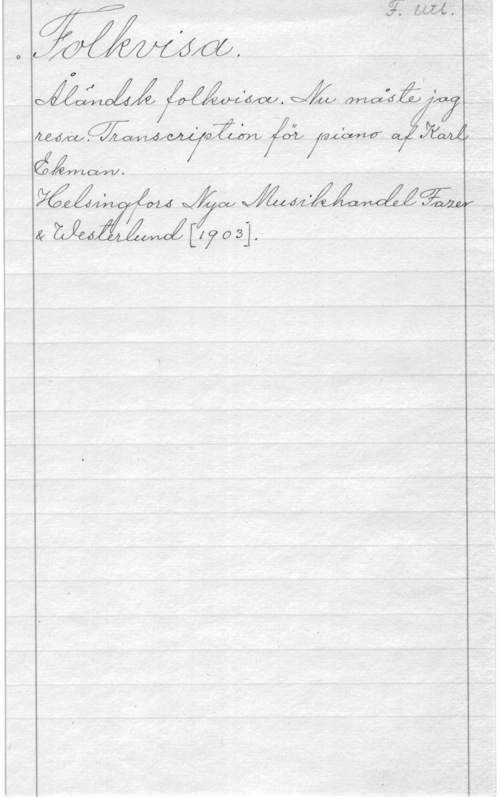 F. Utl.
Folkvisa.
Åländsk folkvisa. Nu måste jag
resa. Transcription för piano af Karl
Ekman.
Helsingfors Nya Musikhandel Fazer
& Westerlund [1903].